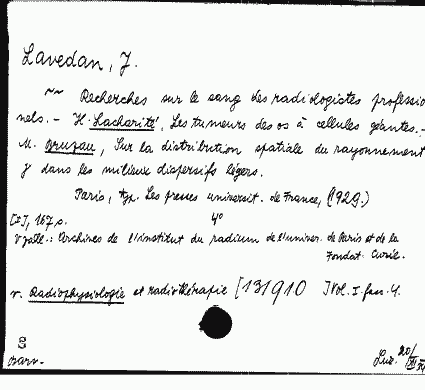 Lavedan, J.
~~ Recherches sur le sang des radiologistes professio
nels. - H. Lacharité, Les tumeurs des os à cellules géantes. -
M. Bruzau, Sur la distribution spatiale du rayonnement
γ dans les milieux dispersifs légers.
Paris, typ. Les presses universit. de France, (1929.)
[II], 167 s. 4°
V zahl.: Archives de l'institut du radium de l'univer. de Paris et de la
Fondat. Curie.
v. Radiophysiologie et radiothérapie [131910 ] Vol. I. fasc. 4.
8
Barv.
Luz. 20/